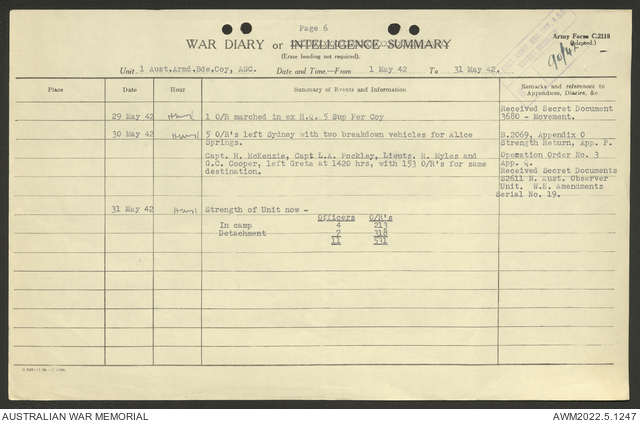 Page 6
Army Form C.2118
(Adapted.)
WAR DIARY or INTELLIGENCE SUMMARY
(Erase heading not required).
Unit 1 Aust.Armd.Bde.Coy, ASC. Date and Time—From 1 May 42 To 31 May 42.
Place Date Hour Summary of Events and Information Remarks and references to
Appendices, Diaries, &c.
29 May 42 1 O/R marched in ex H.Q. 5 Sup Per Coy Received Secret Document
3680 - Movement.
30 May 42 5 O/R's left Sydney with two breakdown vehicles for Alice B.2069, Appendix O
Springs. Strength Return, App. P.
Capt. H. McKenzie, Capt L.A. Pockley, Lieuts. R. Myles and Operation Order No. 3
G.C. Cooper, left Greta at 1420 hrs, with 153 O/R's for same App. Q.
destination. Received Secret Documents
S2611 N. Aust. Observer
Unit. W.E. Amendments
Serial No. 19.
31 May 42 Strength of Unit now -
Officers O/R's
In camp 4 213
Detachment 7 318
11 531
AUSTRALIAN WAR MEMORIAL AWM2022.5.1247